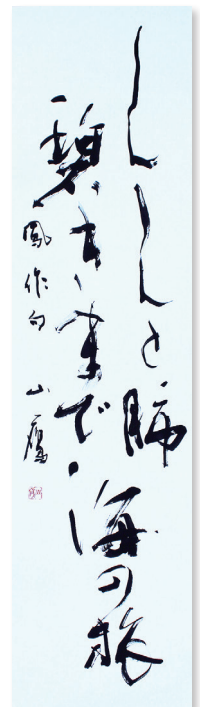 しんしんと肺
碧きまで海の旅
鳳作句 山鷹